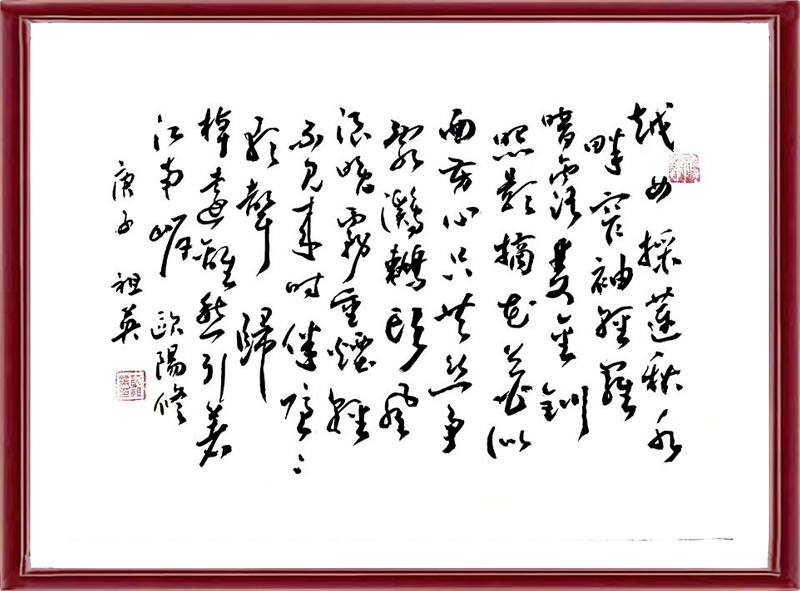 越女採蓮秋水
畔窄袖輕羅
暗露雙金釧
照影摘花花似
面芳心只共丝争
亂鸂鶒頭風
浪晚霧重煙輕
不見来時伴隐々
歌聲歸
棹遠離愁引着
江南岸 歐陽修
庚子 祖英